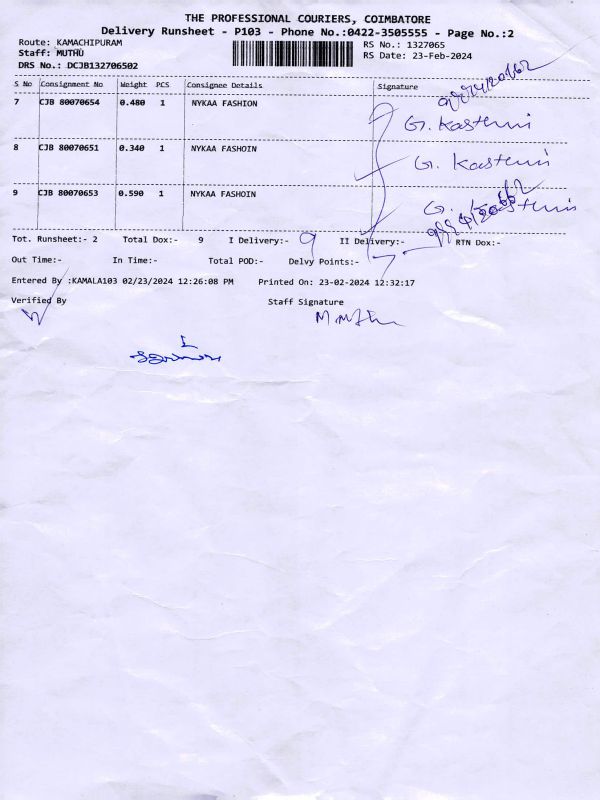 THE PROFESSIONAL COURIERS, COIMBATORE
Delivery Runsheet - P103 - Phone No.:0422-3505555 - Page No.:2
Route: KAMACHIPURAM
RS No.: 1327065
Staff: MUTHU
RS Date: 23-Feb-2024
DRS No.: DCJB132706502
S No Consignment No Weight PCS Consignee Details Signature
7 CJB 80070654 0.480 1 NYKAA FASHION
G. Kasthuri
8 CJB 80070651 0.340 1 NYKAA FASHOIN G. Kasthuri
9 CJB 80070653 0.590 1 NYKAA FASHOIN G. Kasthuri
Tot. Runsheet:- 2 Total Dox:- 9 I Delivery:- 9 II Delivery:- RTN Dox:-
Out Time:- In Time:- Total POD:- Delvy Points:-
Entered By :KAMALA103 02/23/2024 12:26:08 PM Printed On: 23-02-2024 12:32:17
Verified By Staff Signature